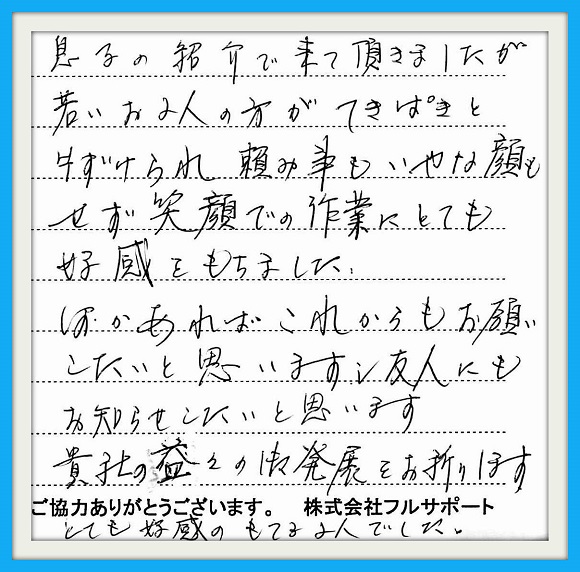 息子の紹介で来て頂きましたが
若いお2人の方がてきぱきと
片ずけられ 頼み事もいやな顔も
せず笑顔での作業にとても
好感をもちました。
ほかあればこれからもお願い
したいと思いますし友人にも
お知らせしたいと思います
貴社の益々の御発展をお祈ります
ご協力ありがとうございます。 株式会社フルサポート
とても好感のもてる2人でした。